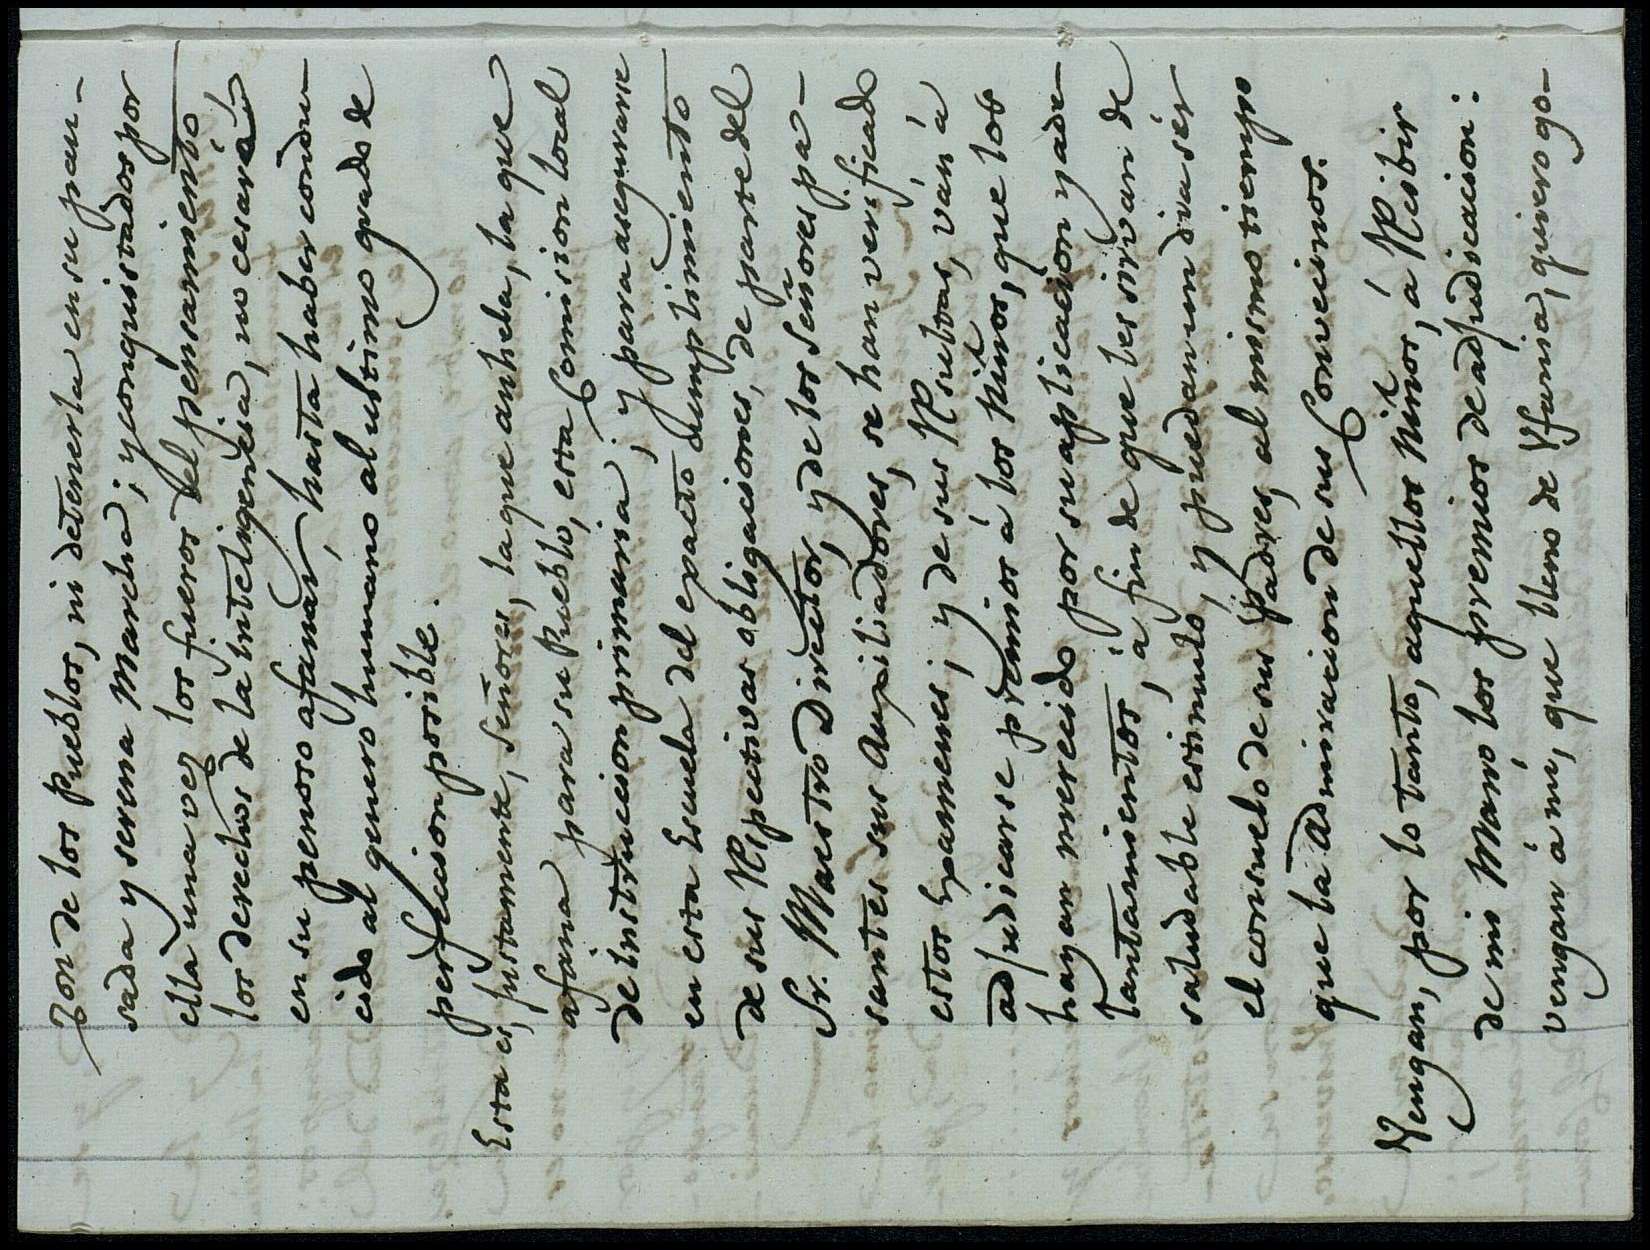 zon de los Pueblos, ni detenerla en su pau-
sada y serena Marcha; y conquistados por
ella una vez los fueros del pensamiento
los derechos de la inteligencia, no cesará
en su penoso afanar, hasta haber condu-
cido al genero humano al ultimo grado de
perfeccion posible.
Esta es, justamente, señores, la que anhela, la que
afana para su Pueblo, esta Comision local
de instruccion primaria; y para asegurarse
en esta Escuela del exacto cumplimiento
de sus Respectivas obligaciones, de parte del
Sr. Maestro Director, y de los Señores pa-
santes sus Auxiliadores, se han verificado
estos Examenes; y de sus Resultas, ván á
adjudicarse premios á los Niños, que los
hayan merecido por su aplicacion y ade-
lantamientos, á fin de que les sirvan de
saludable estimulo, y puedan un dia sér
el consuelo de sus Padres, al mismo tiempo
que la Admiracion de sus Convecinos.
Vengan, por lo tanto, aquellos Niños, á Recibir
de mi Mano los premios de adjudicacion:
vengan á mí, que lleno de Ufania, quiero go-